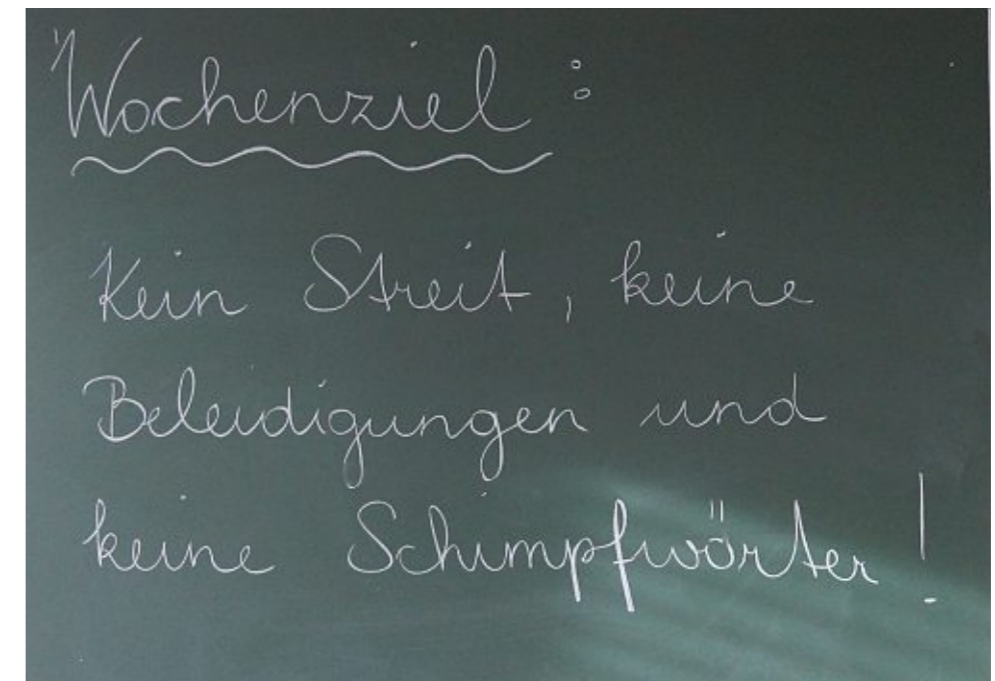 Wochenziel:
Kein Streit, keine
Beleidigungen und
keine Schimpfwörter!